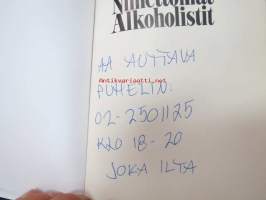 Nimettömät
Alkoholistit
AA AUTTAVA
PUHELIN:
02-2501125
KLO 18-20
JOKA ILTA
Antikvariaatti.net